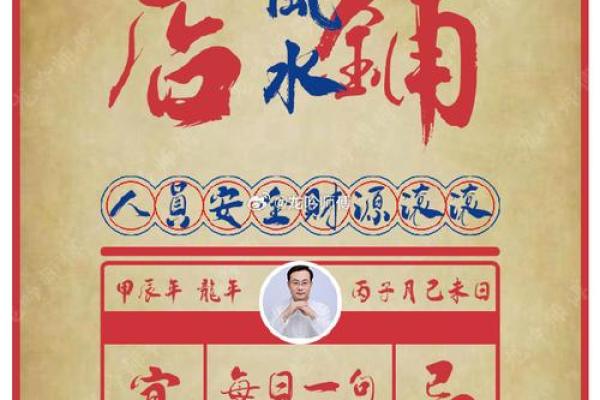 店風水鋪
人員安全財源滾滾
@龙吟师傅
甲辰年 龍年 丙子月己未日
宜 每日一句 忌